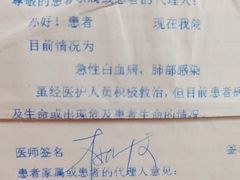 尊敬的患者家属或患者的代理人！
你好！患者 现在我院
目前情况为
急性白血病，肺部感染
虽经医护人员积极救治，但目前患者病
及生命或出现危及患者生命的情况
医师签名 签
患者家属或患者的代理人意见：